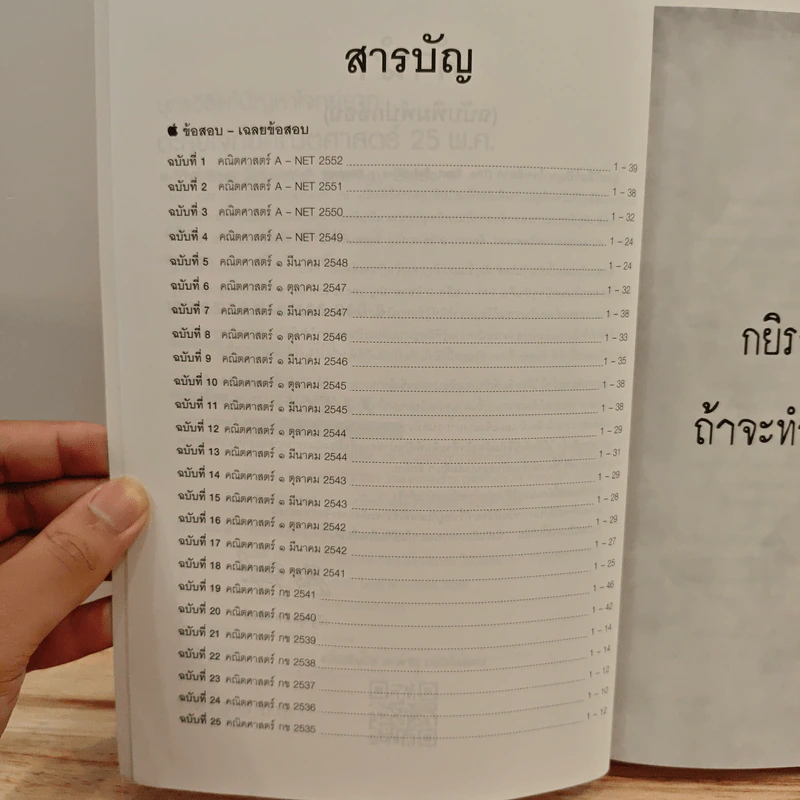 สารบัญ
ข้อสอบ – เฉลยข้อสอบ
ฉบับที่ 1 คณิตศาสตร์ A – NET 2552 1 – 39
ฉบับที่ 2 คณิตศาสตร์ A – NET 2551 1 – 38
ฉบับที่ 3 คณิตศาสตร์ A – NET 2550 1 – 32
ฉบับที่ 4 คณิตศาสตร์ A – NET 2549 1 – 24
ฉบับที่ 5 คณิตศาสตร์ ๑ มีนาคม 2548 1 – 24
ฉบับที่ 6 คณิตศาสตร์ ๑ ตุลาคม 2547 1 – 32
ฉบับที่ 7 คณิตศาสตร์ ๑ มีนาคม 2547 1 – 38
ฉบับที่ 8 คณิตศาสตร์ ๑ ตุลาคม 2546 1 – 33
ฉบับที่ 9 คณิตศาสตร์ ๑ มีนาคม 2546 1 – 35
ฉบับที่ 10 คณิตศาสตร์ ๑ ตุลาคม 2545 1 – 38
ฉบับที่ 11 คณิตศาสตร์ ๑ มีนาคม 2545 1 – 38
ฉบับที่ 12 คณิตศาสตร์ ๑ ตุลาคม 2544 1 – 29
ฉบับที่ 13 คณิตศาสตร์ ๑ มีนาคม 2544 1 – 31
ฉบับที่ 14 คณิตศาสตร์ ๑ ตุลาคม 2543 1 – 29
ฉบับที่ 15 คณิตศาสตร์ ๑ มีนาคม 2543 1 – 28
ฉบับที่ 16 คณิตศาสตร์ ๑ ตุลาคม 2542 1 – 29
ฉบับที่ 17 คณิตศาสตร์ ๑ มีนาคม 2542 1 – 27
ฉบับที่ 18 คณิตศาสตร์ ๑ ตุลาคม 2541 1 – 25
ฉบับที่ 19 คณิตศาสตร์ กข 2541 1 – 46
ฉบับที่ 20 คณิตศาสตร์ กข 2540 1 – 42
ฉบับที่ 21 คณิตศาสตร์ กข 2539 1 – 14
ฉบับที่ 22 คณิตศาสตร์ กข 2538 1 – 14
ฉบับที่ 23 คณิตศาสตร์ กข 2537 1 – 12
ฉบับที่ 24 คณิตศาสตร์ กข 2536 1 – 10
ฉบับที่ 25 คณิตศาสตร์ กข 2535 1 – 12
กยิร
ถ้าจะทำ